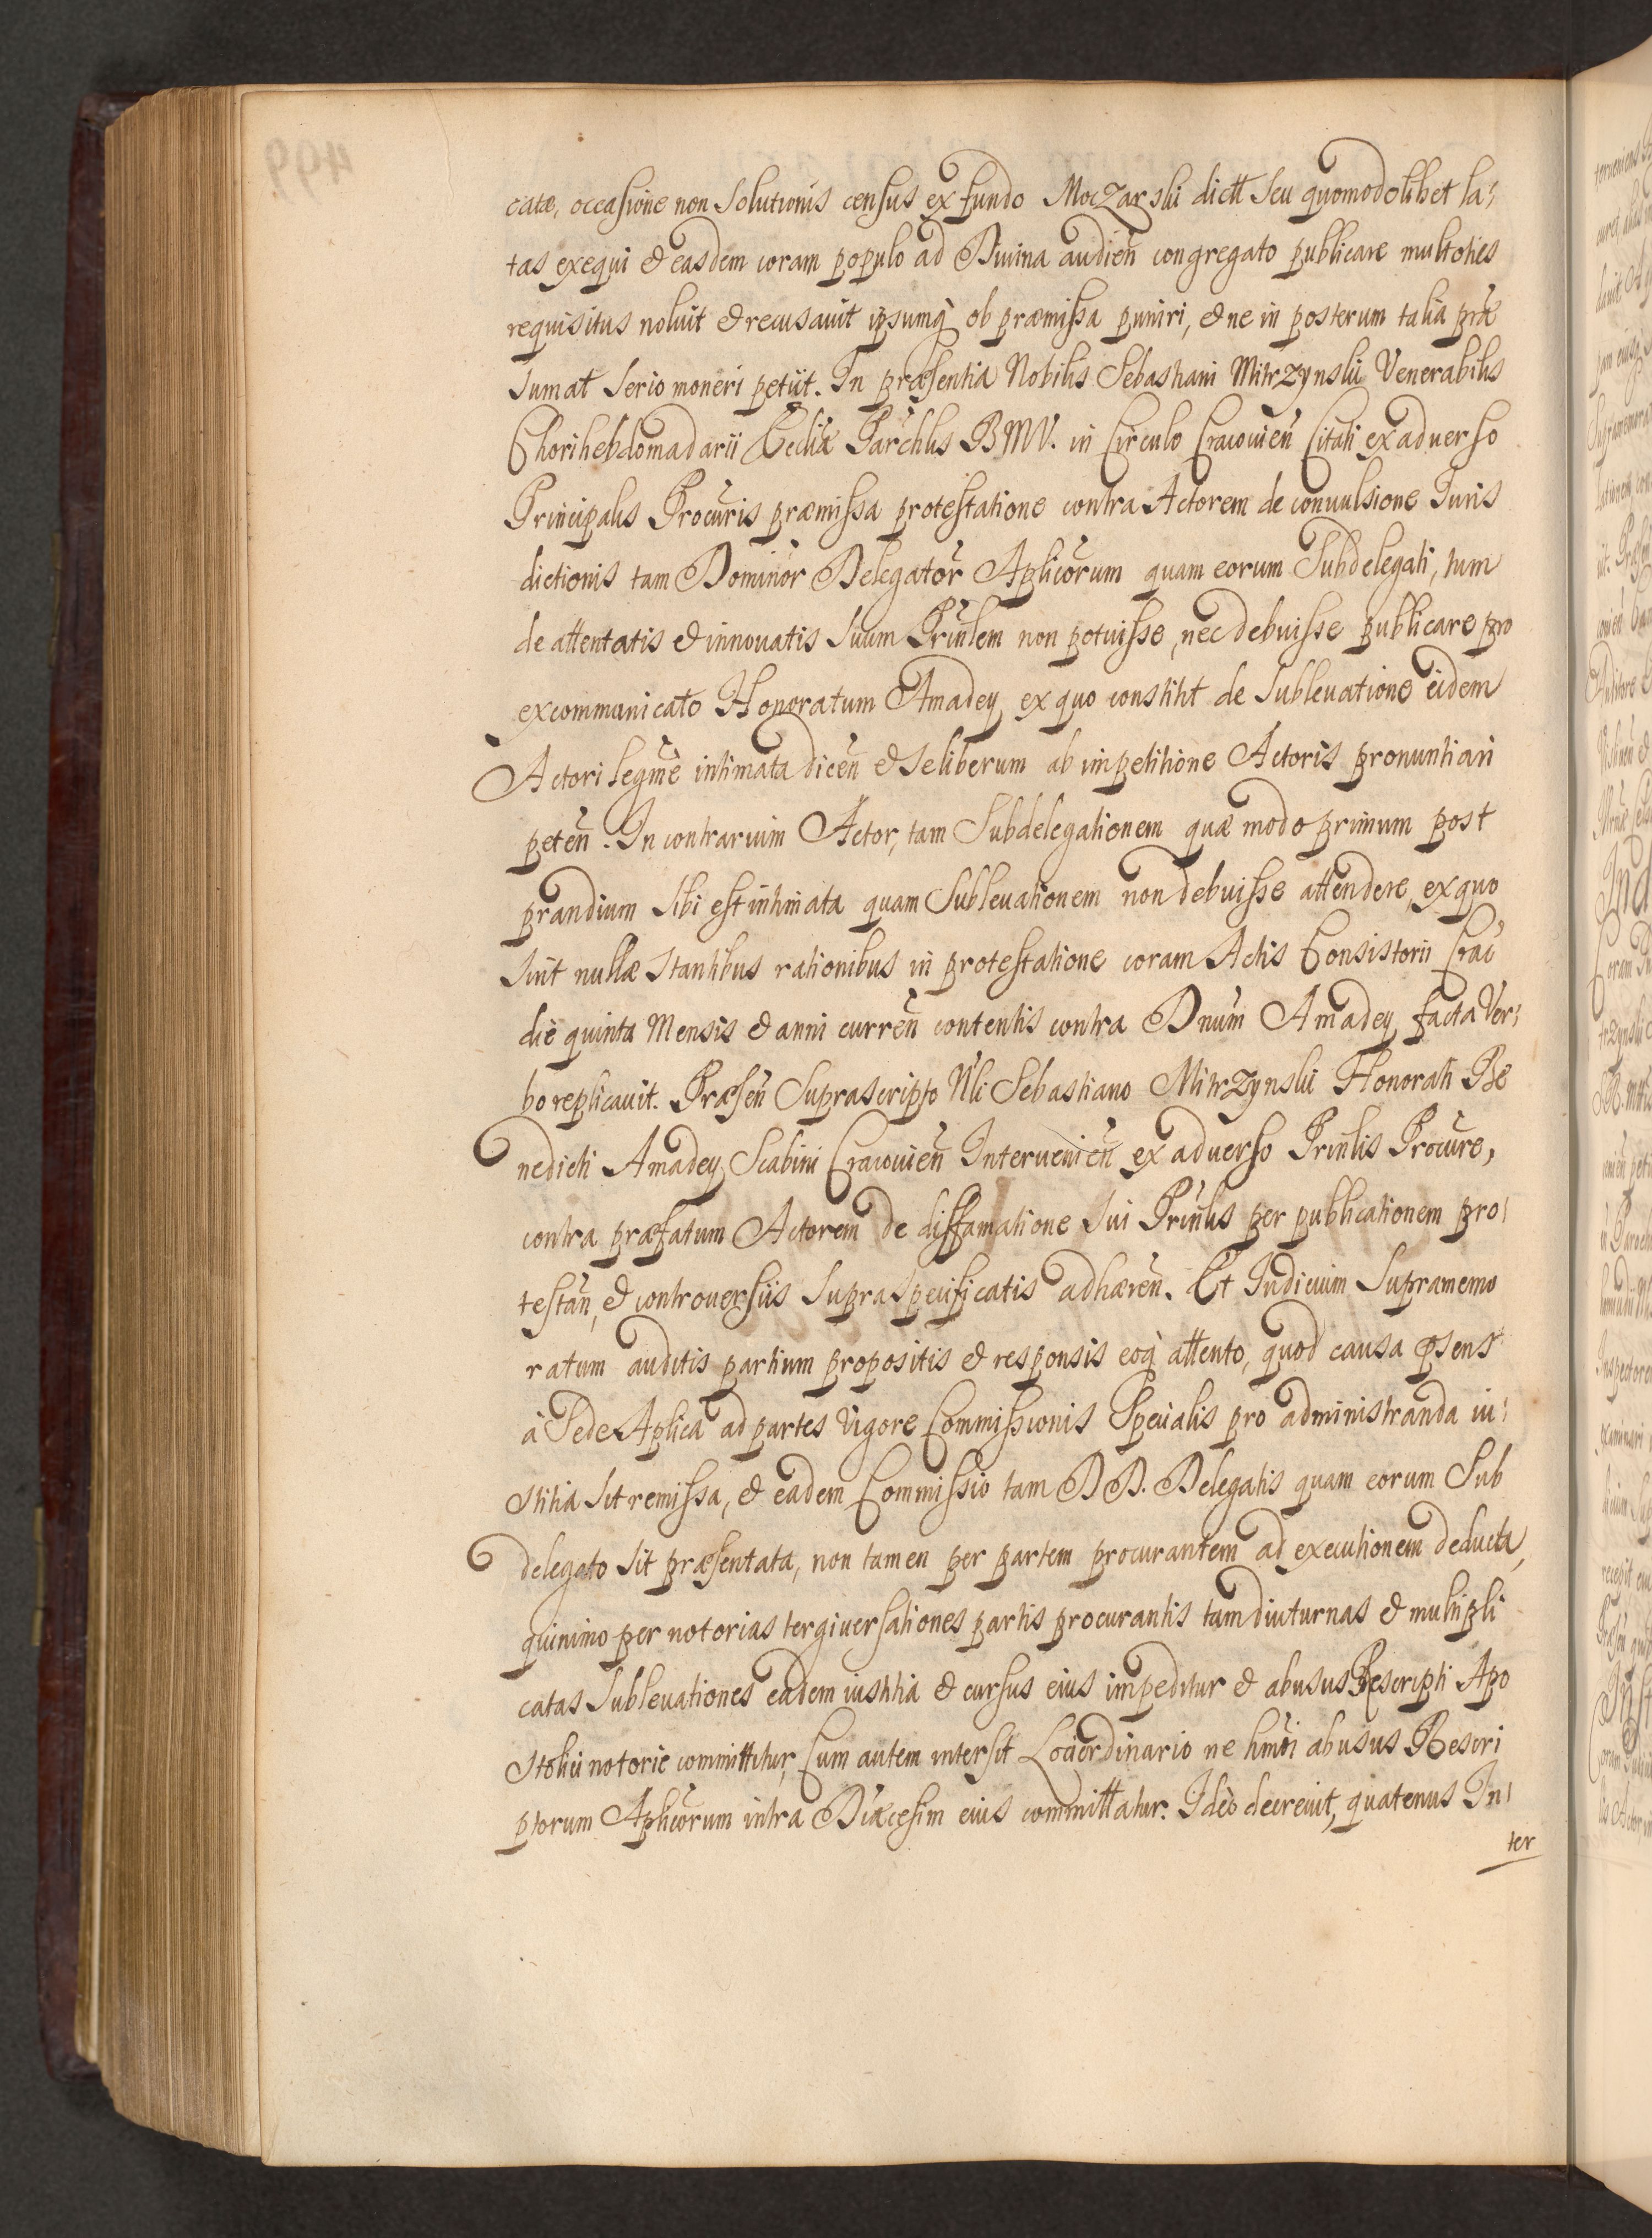 catæ, occasione non solutionis census ex fundo Moczarski dictt seu quomodolibet la-
tas exequi et easdem coram populo ad Diuina audien̄ congregato publicare multoties
requisitus noluit et recusauit ipsumq̀ ob præmissa puniri, et ne in posterum talia præ
sumat serio moneri petiit. In præsentia Nobilis Sebastiani Mitrzynski Venerabilis
Chorihebdomadarii Eccliæ Parchlis BMV. in Circulo Cracouien̄ Citati ex aduerso
Principalis Procuris præmissa protestatione contra Actorem de conuulsione Iuris
dictionis tam Dominor̄ Delegator̄ Aplicorum quam eorum Subdelegati, tum
de attentatis et innouatis suum Prinlem non potuisse, nec debuisse publicare pro
excommunicato Honoratum Amadey, ex quo constitit de subleuatione eidem
Actori legme intimata dicen̄ et se liberum ab impetitione Actoris pronuntiari
peten̄. In contrarium Actor, tam Subdelegationem quæ modo primum post
prandium sibi est intimata quam Subleuationem non debuisse attendere, ex quo
sint nullæ stantibus rationibus in protestatione coram Actis Consistorii Crac
die quinta Mensis et anni curren̄ contentis contra Dnum Amadey facta Ver-
bo replicauit. Præsen̄ Suprascripto Nli Sebastiano Mitrzynski Honorati Be
nedicti Amadey Scabini Cracouien̄ Interuenien̄ ex aduerso Prinlis Procure,
contra præfatum Actorem de diffamatione sui Prinlis per publicationem pro-
testan̄, et controuersiis supraspecificatis adhæren̄. Et Iudicium Supramemo
ratum auditis partium propositis et responsis eoq̀ attento, quod causa psens
à Sede Aplica ad partes vigore Commissionis Specialis pro administranda iu-
stitia sit remissa, et eadem Commissio tam DD. Delegatis quam eorum Sub
delegato sit præsentata, non tamen per partem procurantem ad executionem deducta,
quinimo per notorias tergiuersationes partis procurantis tam diuturnas et multipli
catas subleuationes eadem iustitia et cursus eius impeditur et abusus Rescripti Apo
stolici notorie committitur, Cum autem intersit Lociordinario ne hmōi abusus Rescri
ptorum Aplicorum intra Diæcesim eius committatur. Ideò decreuit, quatenus In-
ter